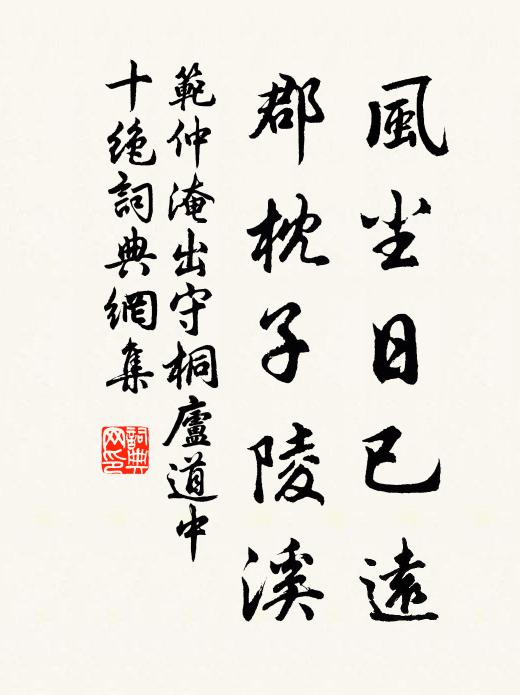 風尘日已遠
郡枕子陵溪
範仲淹出守桐廬道中
十绝詞典網集
詞典
网印